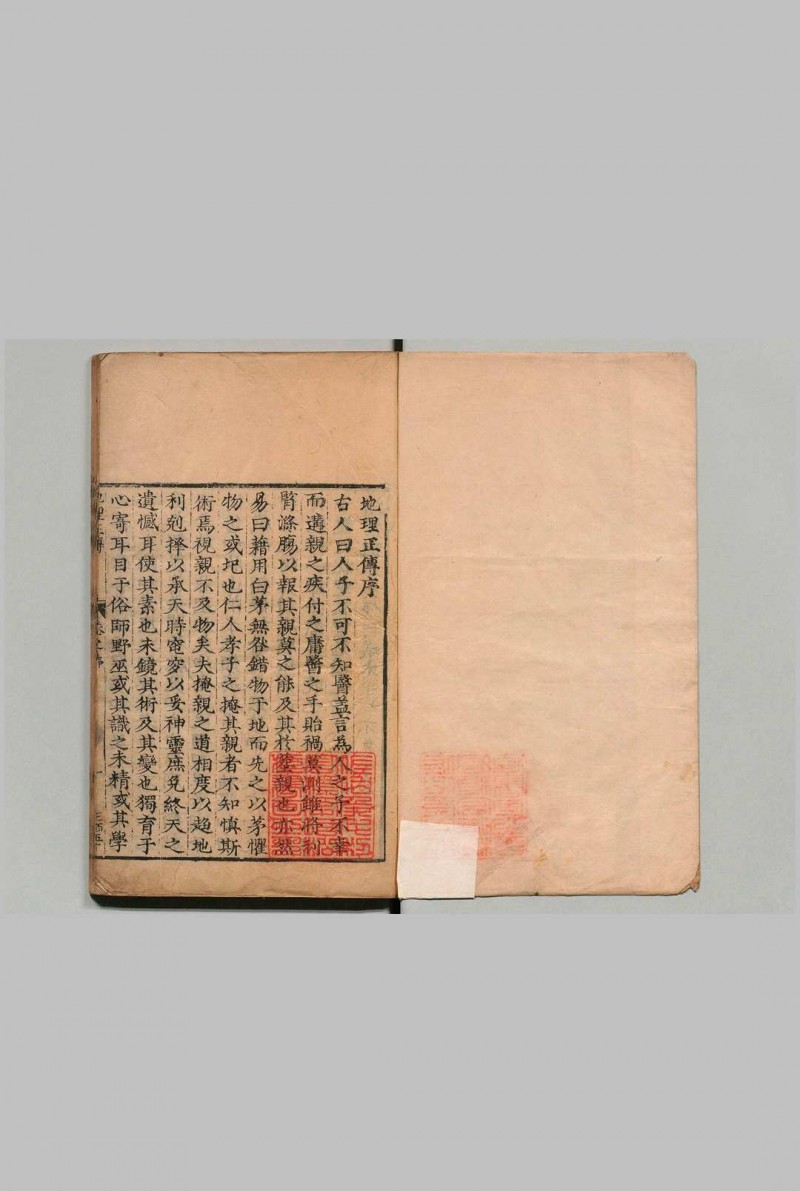 地理正傳序
古人曰人子不可不知醫葢言為人之子不幸
而遘親之疾付之庸醫之手貽禍莫測雖將刲
腎滌腸以報其親莫之能及其於塟親也亦然
易曰藉用白茅無咎錯物于地而先之以茅懼
物之或圯也仁人孝子之掩其親者不知慎斯
術焉視親不及物矣夫掩親之道相度以趋地
利剋擇以承天時窀穸以妥神靈庶免終天之
遺憾耳使其素也未鏡其術及其變也獨盲于
心寄耳目于俗師野巫或其識之未精或其學
地理正傳